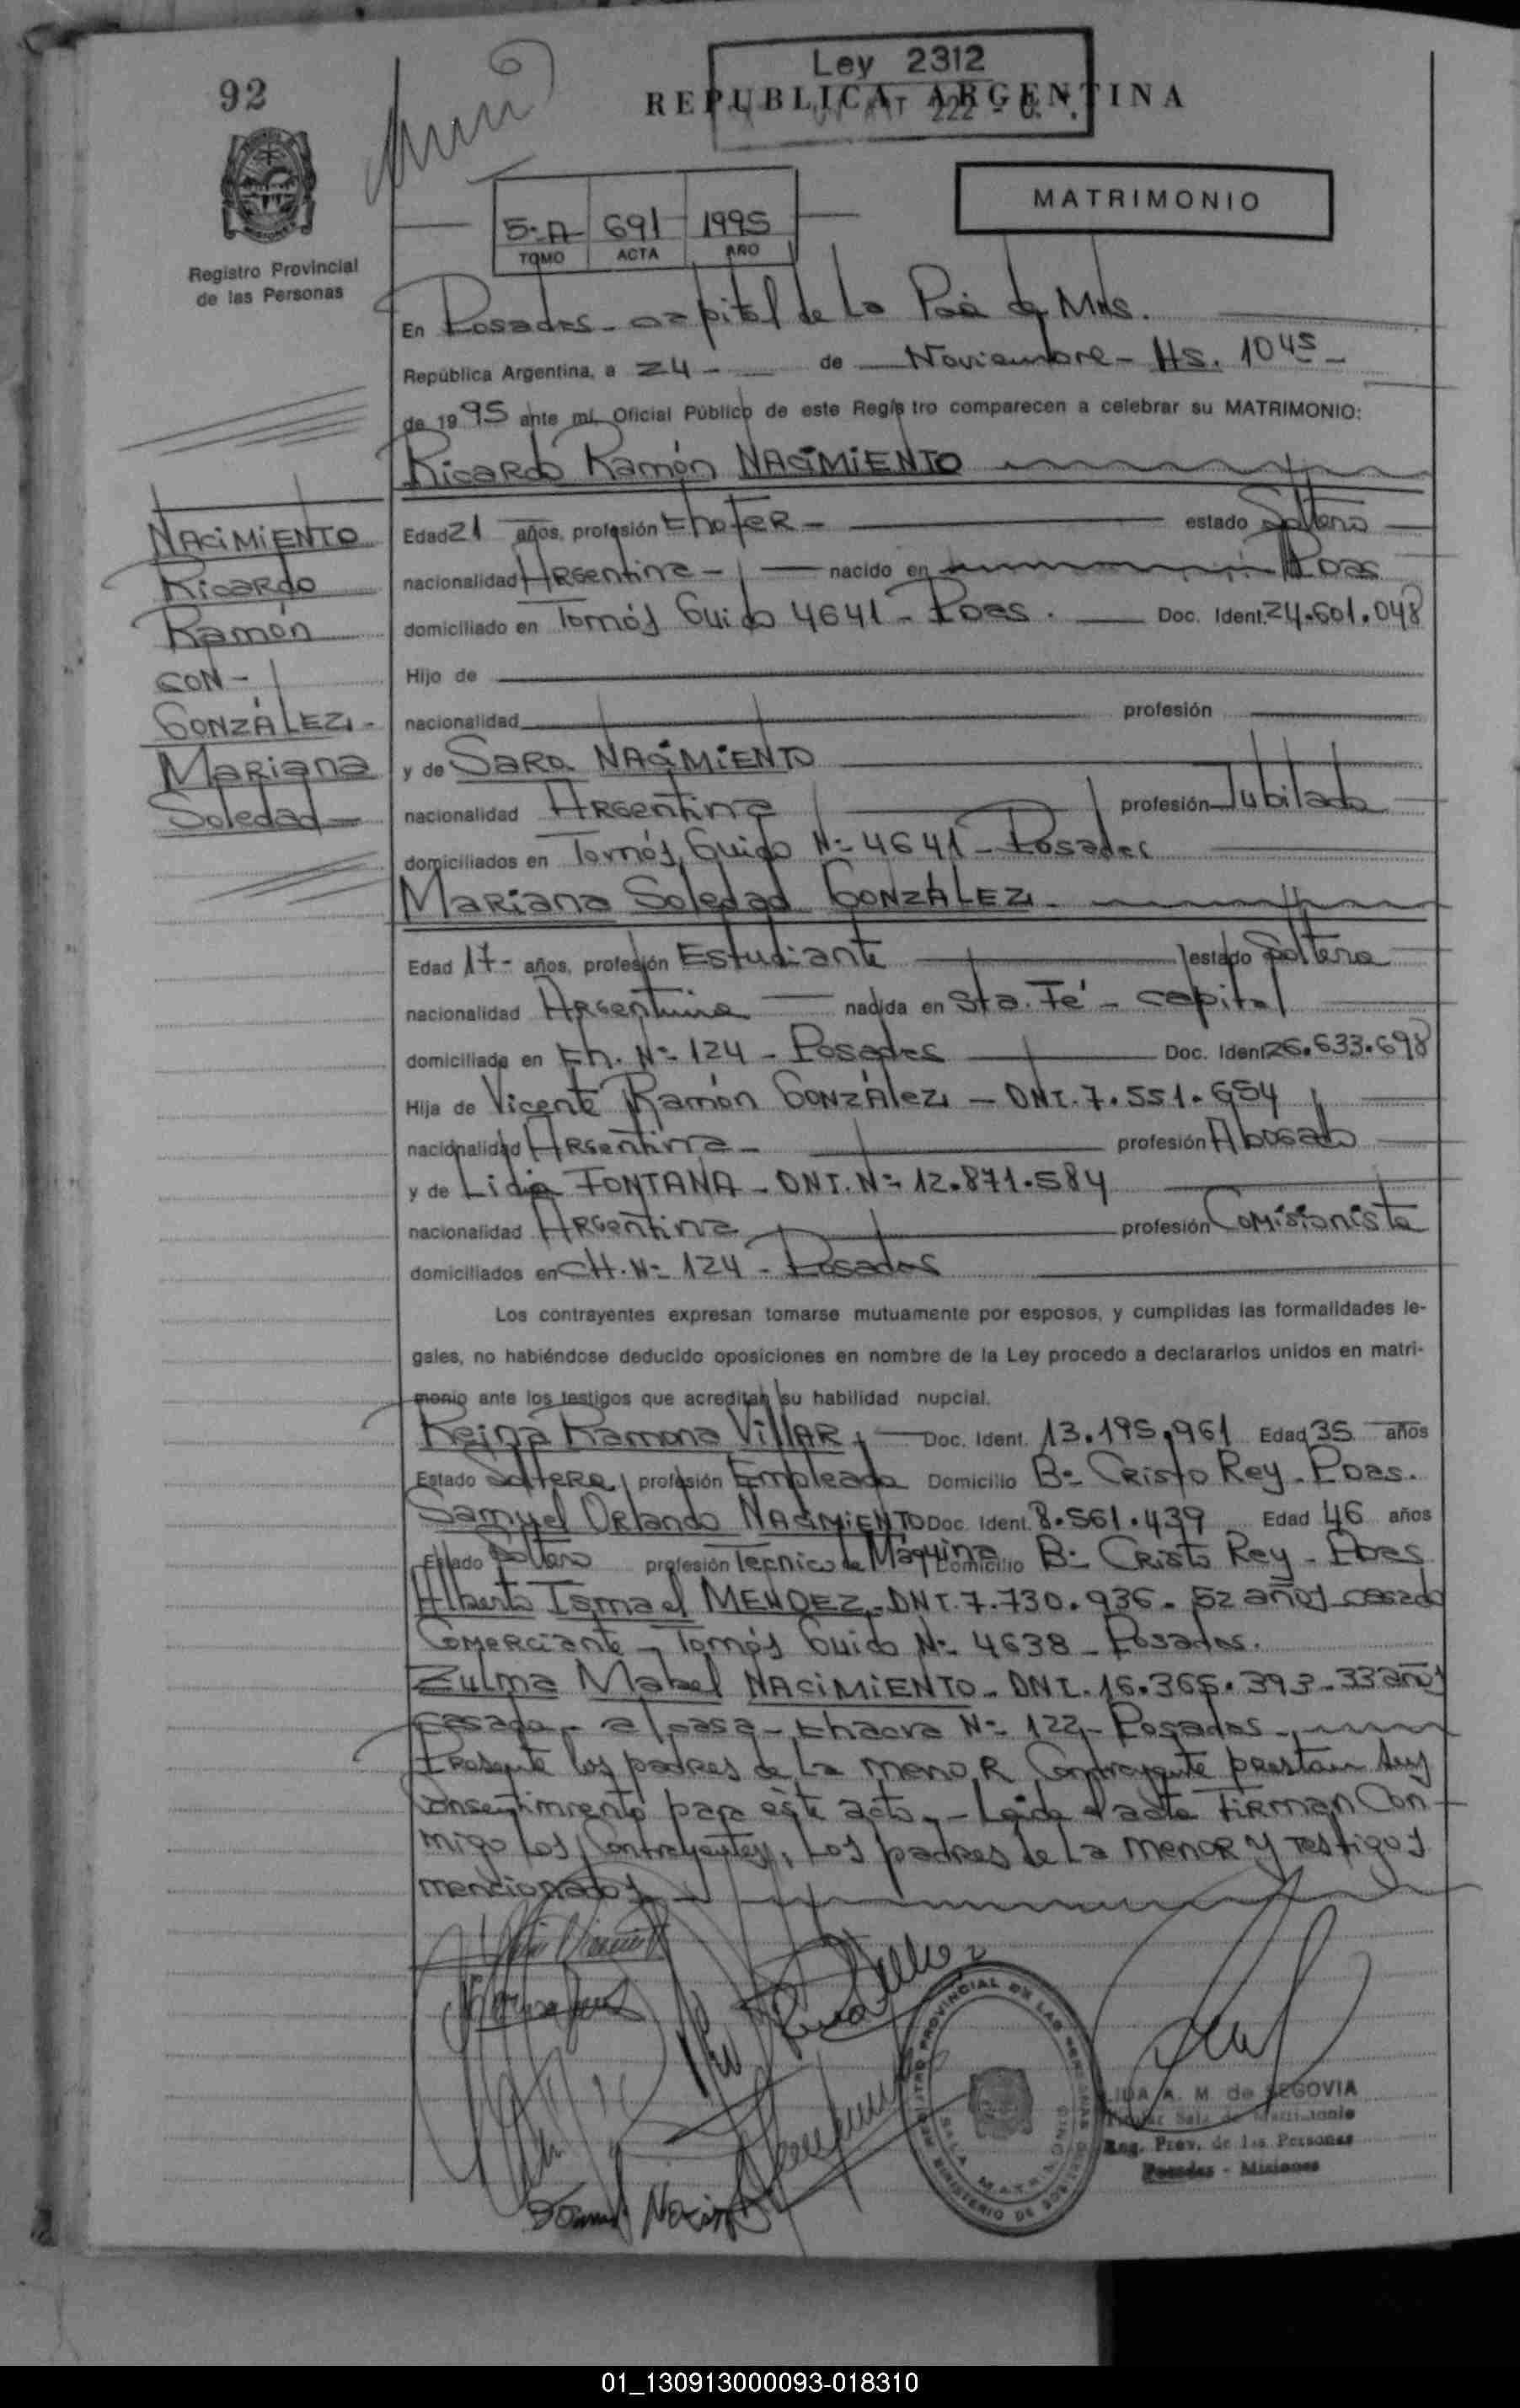 92
Ley 2312
REPUBLICA ARGENTINA
222
MATRIMONIO
5-A 691 1995
TOMO ACTA AÑO
Registro Provincial
de las Personas
En Posadas - capital de La Pcia de Mnes.
República Argentina, a 24 - de Noviembre - Hs. 10 45 -
de 19 95 ante mí, Oficial Público de este Registro comparecen a celebrar su MATRIMONIO:
Ricardo Ramón NACIMIENTO
NACIMIENTO
Ricardo
Ramón
CON -
GONZÁLEZ -
Mariana
Soledad
Edad 21 años, profesión Chofer - estado Soltero
nacionalidad Argentina - nacido en Pdas
domiciliado en Tomás Guido 4641 - Pdas. Doc. Ident. 24.601.048
Hijo de
nacionalidad profesión
y de Sara NACIMIENTO
nacionalidad Argentina profesión Jubilada
domiciliados en Tomás Guido Nº 4641 - Posadas
Mariana Soledad GONZÁLEZ -
Edad 17 - años, profesión Estudiante estado Soltera
nacionalidad Argentina nacida en Sta. Fé - capital
domiciliada en Ch. Nº 124 - Posadas Doc. Ident. 26.633.698
Hija de Vicente Ramón GONZÁLEZ - DNI. 7.551.654
nacionalidad Argentina - profesión Abogado
y de Lidia FONTANA - DNI. Nº 12.871.584
nacionalidad Argentina profesión Comisionista
domiciliados en CH. Nº 124 - Posadas
Los contrayentes expresan tomarse mutuamente por esposos, y cumplidas las formalidades le-
gales, no habiéndose deducido oposiciones en nombre de la Ley procedo a declararlos unidos en matri-
monio ante los testigos que acreditan su habilidad nupcial.
Reina Ramona VILLAR, Doc. Ident. 13.195.961 Edad 35 años
Estado Soltera profesión Empleada Domicilio Bº Cristo Rey - Pdas.
Samuel Orlando NACIMIENTO Doc. Ident. 8.561.439 Edad 46 años
Estado Soltero profesión Tecnico de Máquina Domicilio Bº Cristo Rey - Pdas
Alberto Ismael MENDEZ - DNI. 7.730.936 - 52 años casado
Comerciante - Tomás Guido Nº 4638 - Posadas.
Zulma Mabel NACIMIENTO - DNI. 16.365.393 - 33 años
casada - a/casa - Chacra Nº 122 - Posadas -
Presente los padres de La menor Contrayente prestan sus
Consentimiento para este acto. - Leida el acta Firman Con
migo Los Contrayentes, Los padres de La menor y Testigos
mencionados
REGISTRO PROVINCIAL DE LAS PERSONAS
SALA MATRIMONIO
MINISTERIO DE GOBIERNO
A. M. de SEGOVIA
Titular Sala de Matrimonio
Reg. Prov. de las Personas
Posadas - Misiones
01_130913000093-018310